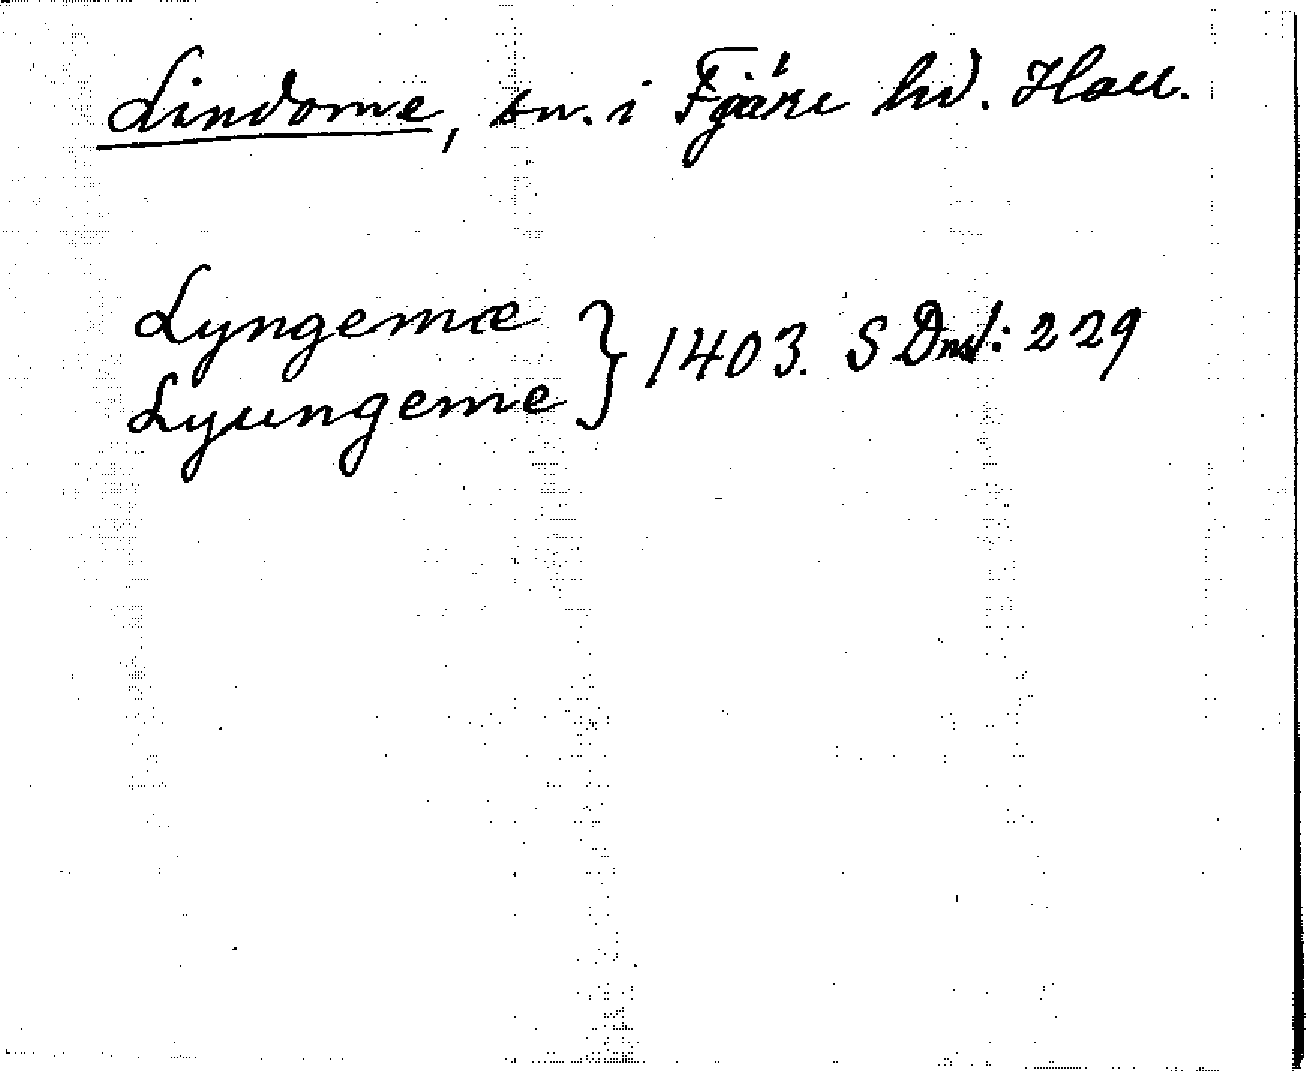 Lindome, sn. i Fjäre hd. Hall.
Lyngemæ } 1403. SDns1: 229
Lyungeme